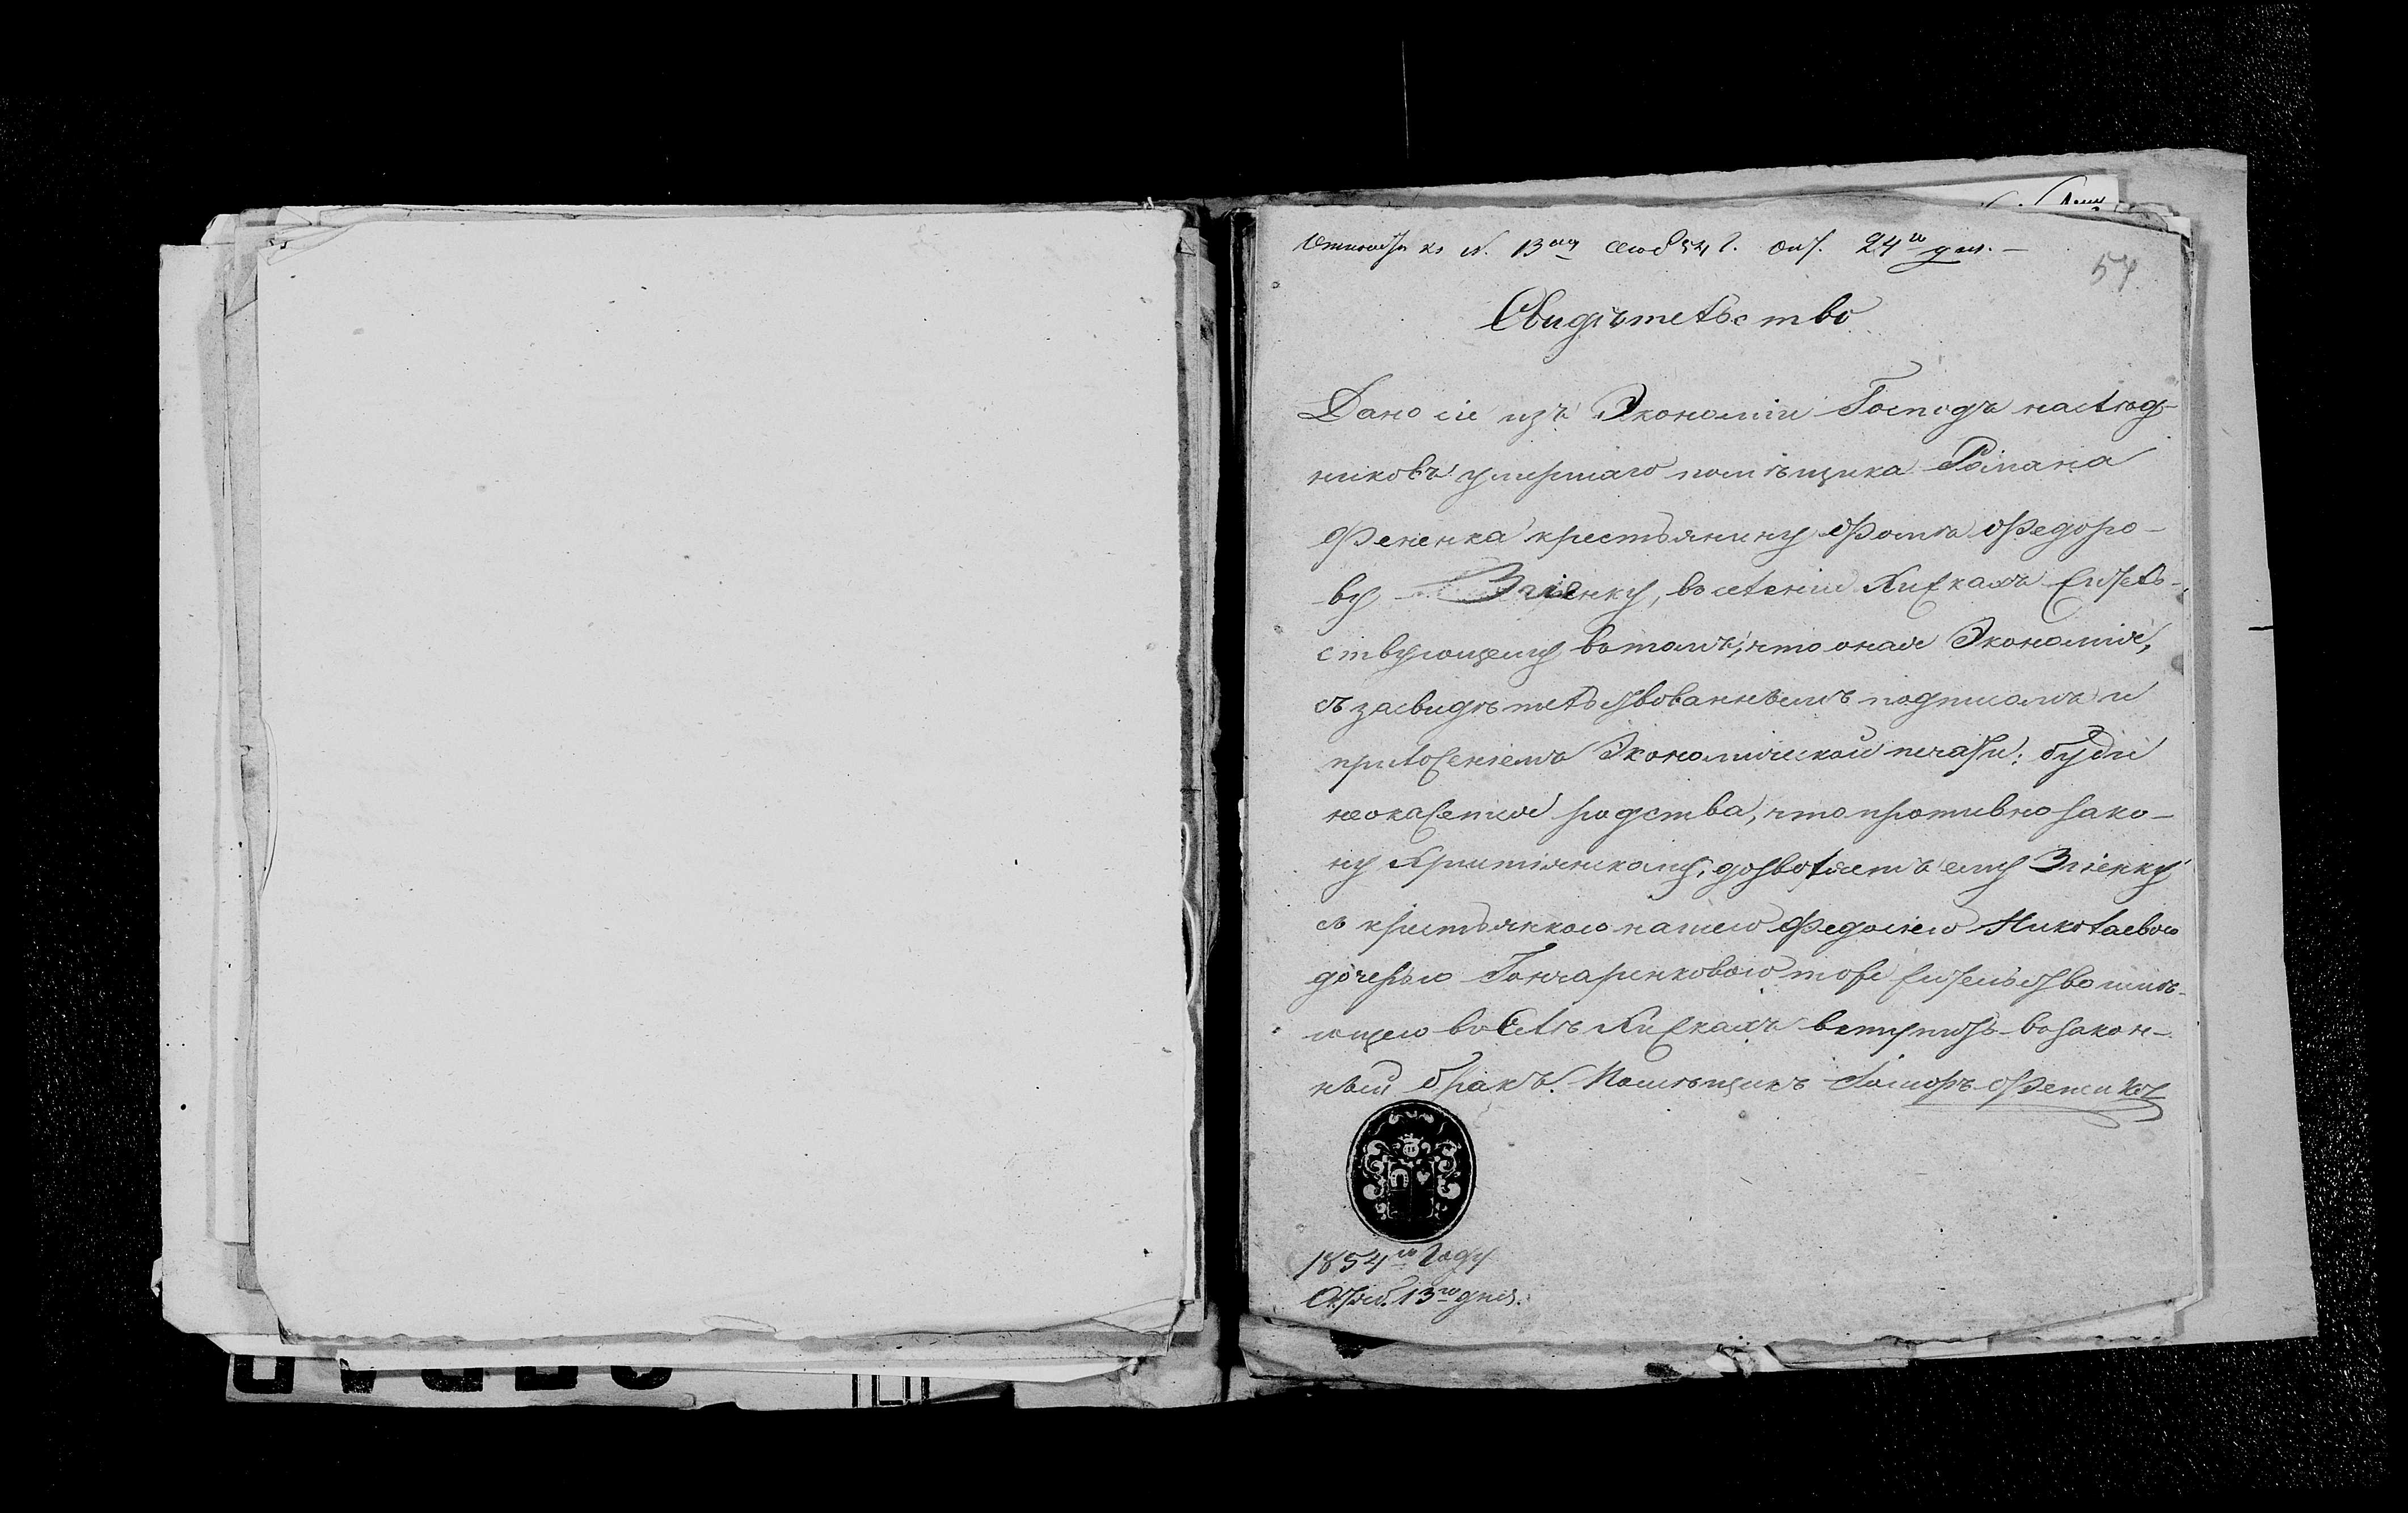 къ N. 13 1854 г. Окт. 24го дня. —
57.
Свидѣтельство
Дано сіе изъ Экономіи Господъ наслѣд-
никовъ умершаго помѣщика Романа
Фененка крестьянину Фомѣ Федоро-
ву Згіенку, въ селеніи Кижкахъ житель-
ствующему въ томъ, что оная Экономія,
съ засвидѣтельствованнымъ подписомъ и
приложеніемъ Экономической печати: буди
неокажется родства, что противно зако-
ну Христіянскому, дозволяетъ ему Згіенку
съ крестьянкою нашею Федосіею Николаевою
дочерью Гончаренковою тоже жительство имѣ-
ющею въ Селѣ Кижкахъ вступить въ закон-
ный бракъ. Помѣщикъ Фененко
1854го Году
Октяб. 13го дня.